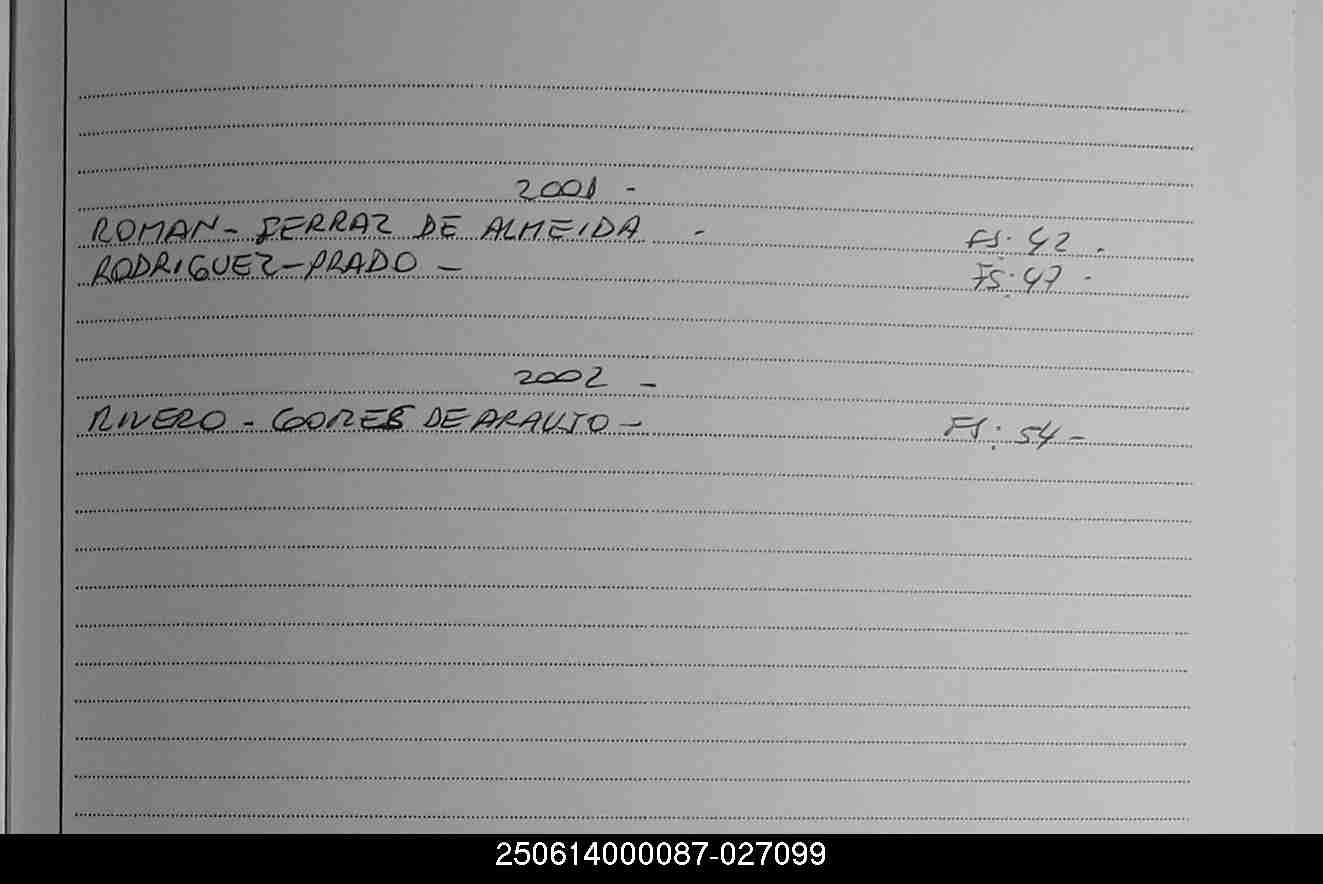 2001 -
ROMAN - FERRAZ DE ALMEIDA - FS. 42 -
RODRIGUEZ - PRADO - FS. 47 -
2002 -
RIVERO - GOMES DE ARAUJO - FS. 54 -
250614000087-027099